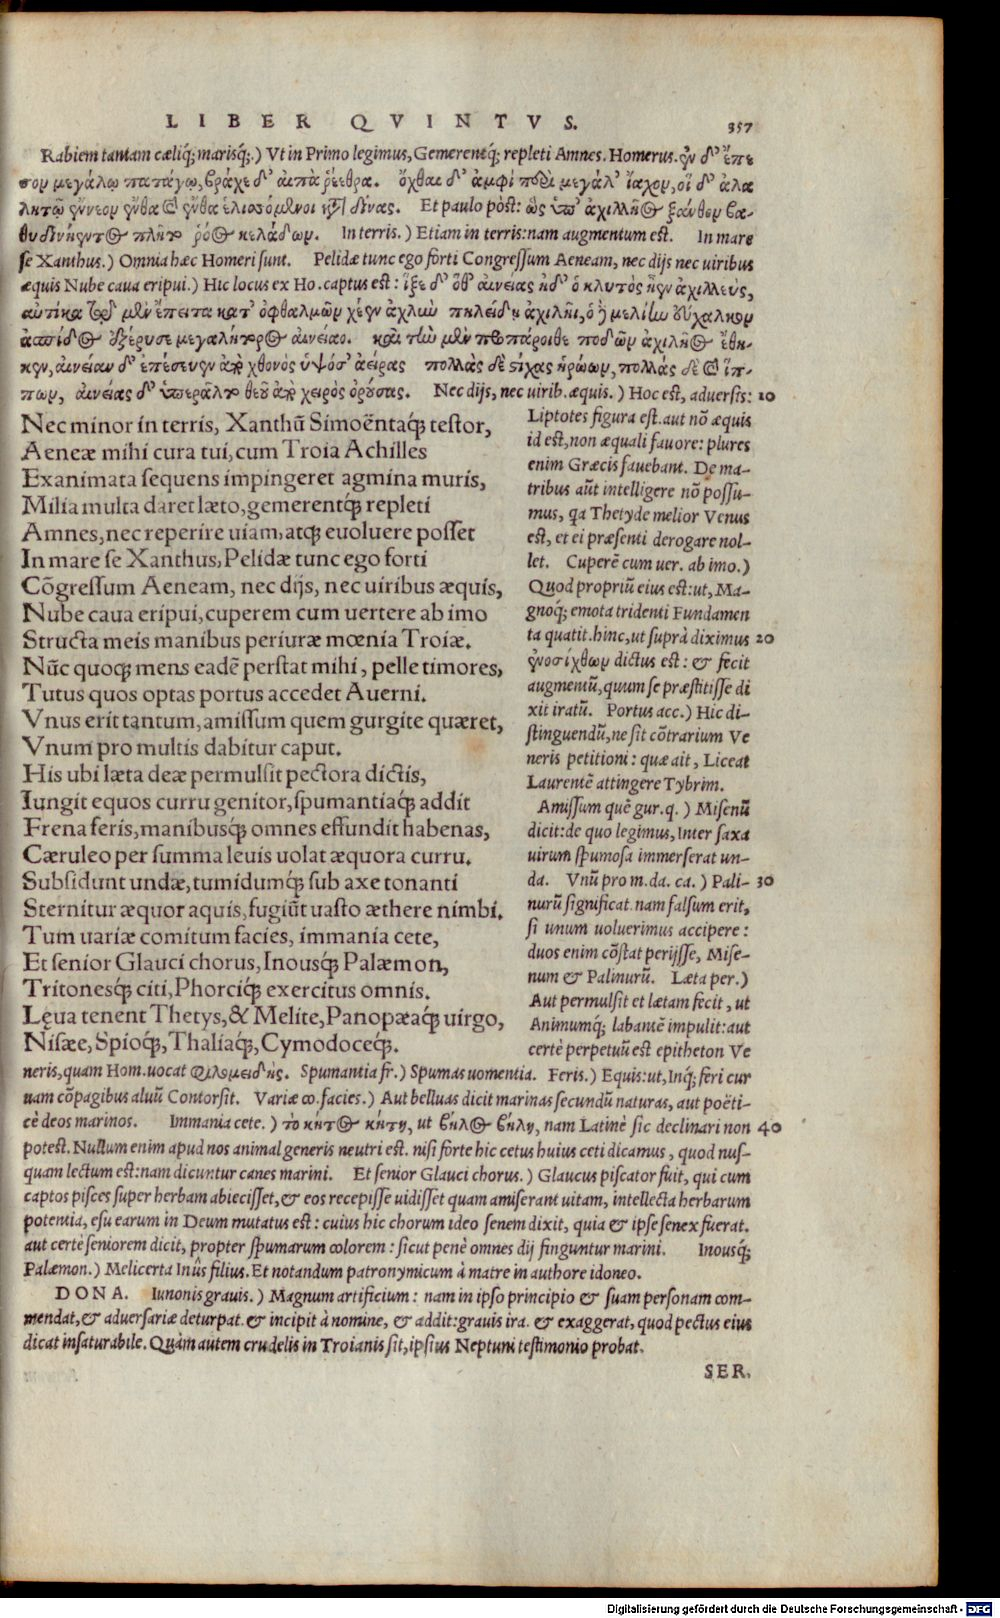 LIBER QVINTVS. 357
Rabiem tantam cæliq́; marisq́;.) Vt in Primo legimus, Gemerentq́; repleti Amnes. Homerus. ἐν δ' ἔπε
σον μεγάλῳ πατάγῳ, βράχε δ' αἰπὰ ῥέεθρα. ὄχθαι δ' ἀμφὶ περὶ μεγάλ' ἴαχον, οἱ δ' ἀλα
λητῷ ἔννεον ἔνθα καὶ ἔνθα ἑλισσόμενοι κατὰ δίνας. Et paulo pòst: ὣς ὑπ' ἀχιλλῆος ξάνθου βα-
θυδινήεντος πλῆτο ῥόος κελάδων. In terris.) Etiam in terris: nam augmentum est. In mare
se Xanthus.) Omnia hæc Homeri sunt. Pelidæ tunc ego forti Congressum Aeneam, nec dijs nec viribus
æquis Nube caua eripui.) Hic locus ex Ho. captus est: ἷξε δ' ὅθ' αἰνείας ἠδ' ὁ κλυτὸς ἦεν ἀχιλλεύς,
αὐτίκα τῷ μὲν ἔπειτα κατ' ὀφθαλμῶν χέεν ἀχλὺν πηλείδῃ ἀχιλῆι, ὁ δὲ μελίην εὔχαλκον
ἀσπίδος ἐξέρυσε μεγαλήτορος αἰνείαο. καὶ τὴν μὲν προπάροιθε ποδῶν ἀχιλῆος ἔθη-
κεν, αἰνείαν δ' ἐπέσευεν ἀπὸ χθονὸς ὑψόσ' ἀείρας πολλὰς δὲ στίχας ἡρώων, πολλὰς δὲ καὶ ἵπ-
πων, αἰνείας δ' ὑπερᾶλτο θεοῦ ἀπὸ χειρὸς ὀρούσας. Nec dijs, nec uirib. æquis.) Hoc est, aduersis: 10
Nec minor in terris, Xanthũ Simoẽntaq́; testor,
Aeneæ mihi cura tui, cum Troia Achilles
Exanimata sequens impingeret agmina muris,
Milia multa daret læto, gemerentq́; repleti
Amnes, nec reperire uiam, atq; euoluere posset
In mare se Xanthus, Pelidæ tunc ego forti
Cõgressum Aeneam, nec dijs, nec uiribus æquis,
Nube caua eripui, cuperem cum uertere ab imo
Structa meis manibus periuræ mœnia Troiæ.
Nũc quoq; mens eadẽ perstat mihi, pelle timores,
Tutus quos optas portus accedet Auerni.
Vnus erit tantum, amissum quem gurgite quæret,
Vnum pro multis dabitur caput.
His ubi læta deæ permulsit pectora dictis,
Iungit equos curru genitor, spumantiaq́; addit
Frena feris, manibusq́; omnes effundit habenas,
Cæruleo per summa leuis uolat æquora curru.
Subsidunt undæ, tumidumq́; sub axe tonanti
Sternitur æquor aquis, fugiũt uasto æthere nimbi.
Tum uariæ comitum facies, immania cete,
Et senior Glauci chorus, Inousq́; Palæmon,
Tritonesq́; citi, Phorciq́; exercitus omnis.
Lęua tenent Thetys, & Melite, Panopæaq́; uirgo,
Nisæe, Spioq́;, Thaliaq́;, Cymodoceq́;.
Liptotes figura est. aut nõ æquis
id est, non æquali fauore: plures
enim Græcis fauebant. De ma-
tribus aũt intelligere nõ possu-
mus, qa Thetyde melior Venus
est, et ei præsenti derogare nol-
let. Cuperẽ cum uer. ab imo.)
Quod propriũ eius est: ut, Ma-
gnoq́; emota tridenti Fundamen
ta quatit. hinc, ut suprà diximus 20
ἐνοσίχθων dictus est: & fecit
augmentũ, quum se præstitisse di
xit iratũ. Portus acc.) Hic di-
stinguendũ, ne sit cõtrarium Ve
neris petitioni: quæ ait, Liceat
Laurentẽ attingere Tybrim.
Amissum quẽ gur. q.) Misenũ
dicit: de quo legimus, Inter saxa
uirum spumosa immerserat un-
da. Vnũ pro m. da. ca.) Pali- 30
nurũ significat. nam falsum erit,
si unum uoluerimus accipere:
duos enim cõstat perijsse, Mise-
num & Palinurũ. Læta per.)
Aut permulsit et lætam fecit, ut
Animumq́; labantẽ impulit: aut
certè perpetuũ est epitheton Ve
neris, quam Hom. uocat φιλομειδής. Spumantia fr.) Spumas uomentia. Feris.) Equis: ut, Inq́; feri cur
uam cõpagibus aluũ Contorsit. Variæ co. facies.) Aut belluas dicit marinas secundũ naturas, aut poëti-
cè deos marinos. Immania cete.) τὸ κῆτος κήτη, ut βέλος βέλη, nam Latinè sic declinari non 40
potest. Nullum enim apud nos animal generis neutri est. nisi forte hic cetus huius ceti dicamus, quod nus-
quam lectum est: nam dicuntur canes marini. Et senior Glauci chorus.) Glaucus piscator fuit, qui cum
captos pisces super herbam abiecisset, & eos recepisse uidisset quam amiserant uitam, intellecta herbarum
potentia, esu earum in Deum mutatus est: cuius hic chorum ideo senem dixit, quia & ipse senex fuerat.
aut certè seniorem dicit, propter spumarum colorem: sicut penè omnes dij finguntur marini. Inousq́;
Palæmon.) Melicerta Inûs filius. Et notandum patronymicum à matre in authore idoneo.
DONA. Iunonis grauis.) Magnum artificium: nam in ipso principio & suam personam com-
mendat, & aduersariæ deturpat. & incipit à nomine, & addit: grauis ira. & exaggerat, quod pectus eius
dicat insaturabile. Quàm autem crudelis in Troianis sit, ipsius Neptuni testimonio probat.
SER.
Digitalisierung gefördert durch die Deutsche Forschungsgemeinschaft - DFG